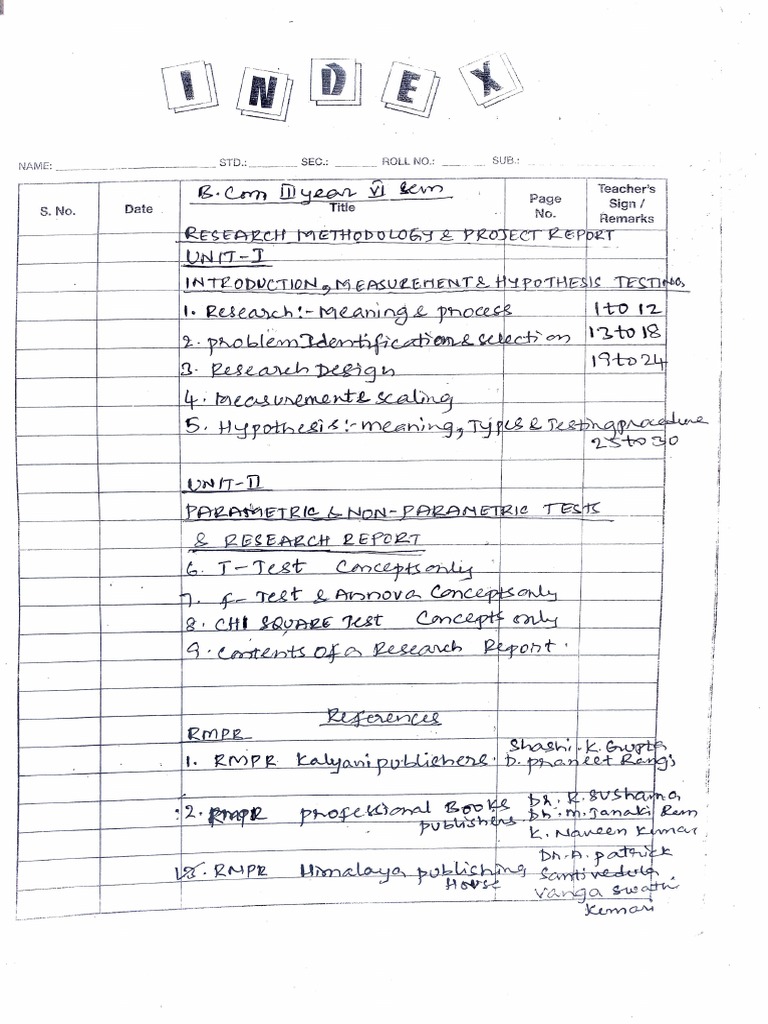 INDEX
NAME: STD.: SEC.: ROLL NO.: SUB.:
S. No. Date Title Page No. Teacher's Sign / Remarks
B.Com III year VI Sem
RESEARCH METHODOLOGY & PROJECT REPORT
UNIT-I
INTRODUCTION, MEASUREMENT & HYPOTHESIS TESTING
1. Research:- Meaning & process 1 to 12
2. problem Identification & selection 13 to 18
3. Research Design 19 to 24
4. Measurement & scaling
5. Hypothesis:- meaning, Types & Testing procedure
25 to 30
UNIT-II
PARAMETRIC & NON-PARAMETRIC TESTS
& RESEARCH REPORT
6. T-Test Concepts only
7. f- Test & Annova Concepts only
8. CHI SQUARE Test Concepts only
9. Contents of a Research Report.
References
RMPR
1. RMPR Kalyani publishers. Shashi.K. Gupta
D. praneet Rangi
2. RMPR professional Books publishers. Dr. R. Sushama,
Dr. M. Janaki Ram
K. Naveen Kumar
RMPR Himalaya publishing House Dr. A. patrick
Santivedula
Vanga Swathi
Kemari